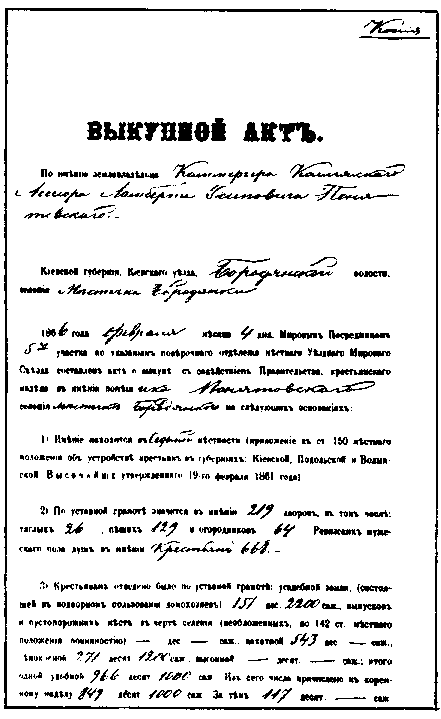 Копія
ВЫКУПНОЙ АКТЪ.
По имѣнію землевладѣльца Каммергера
Ламберта Осиповича Поня-
товскаго.-
Кіевской губерніи, Кіевскаго уѣзда, Бородянской волости,
селенія Мѣстечка Бородянки
1866 года февраля мѣсяца 4 дня. Мировымъ Посредникомъ
5го участка по указаніямъ повѣрочнаго отдѣленія мѣстнаго Уѣзднаго Мироваго
Съѣзда составленъ актъ о выкупѣ съ содѣйствіемъ Правительства, крестьянскаго
надѣла въ имѣніи помѣщика Понятовскаго
селенія мѣстечка Бородянки на слѣдующихъ основаніяхъ:
1) Имѣніе находится въ мѣстности (приложеніе къ ст. 150 мѣстнаго
положенія объ устройствѣ крестьянъ въ губерніяхъ: Кіевской, Подольской и Волын-
ской Высочайше утвержденнаго 19-го февраля 1861 года)
2) По уставной грамотѣ значится въ имѣніи 219 дворовъ, въ томъ числѣ:
тяглыхъ 26, пѣшихъ 129 и огородниковъ 64 Ревизскихъ муже-
скаго пола душъ въ имѣніи Крестьянъ 668.-
3) Крестьянамъ отведено было по уставной грамотѣ: усадебной земли, (состоя-
щей въ подворномъ пользованіи домохозяевъ) 151 дес. 2200 саж., выгоновъ
и пустопорожнихъ мѣстъ въ чертѣ селенія (необложенныхъ, по 142 ст. мѣстнаго
положенія повинностію) — дес — саж. пахатной 543 дес — саж.,
сѣнокосной 271 десят 1200 саж. выгонной — десят. — саж.; итого
одной удобной 966 десят 1000 саж Изъ сего числа причислено къ корен-
ному надѣлу 849 десят 1000 саж За тѣмъ 117 десят. — саж